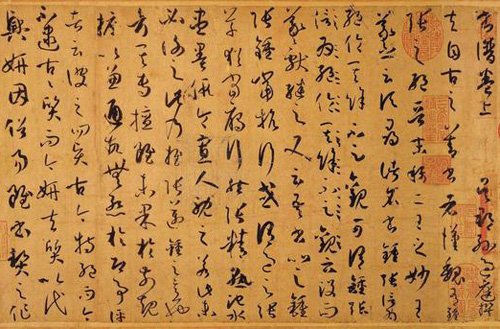 書譜卷上 吳郡孫過庭撰
夫自古之善書者漢魏有鍾
張之絕晉末稱二王之妙王
羲之云頃尋諸名書鍾張信為
絕倫其餘不足觀可謂鍾張
信為絕倫其餘不足觀云沒而
羲獻繼之又云吾書比之鍾
張鍾當抗行或謂過之張
草猶當雁行然張精熟池水
盡墨假令寡人耽之若此未
必謝之此乃推張邁鍾之意也
考其專擅雖未果於前規
摭以兼通故無慚於即事評
者云彼之四賢古今特絕而今
不逮古古質而今妍夫質以代
興妍因俗易雖書契之作